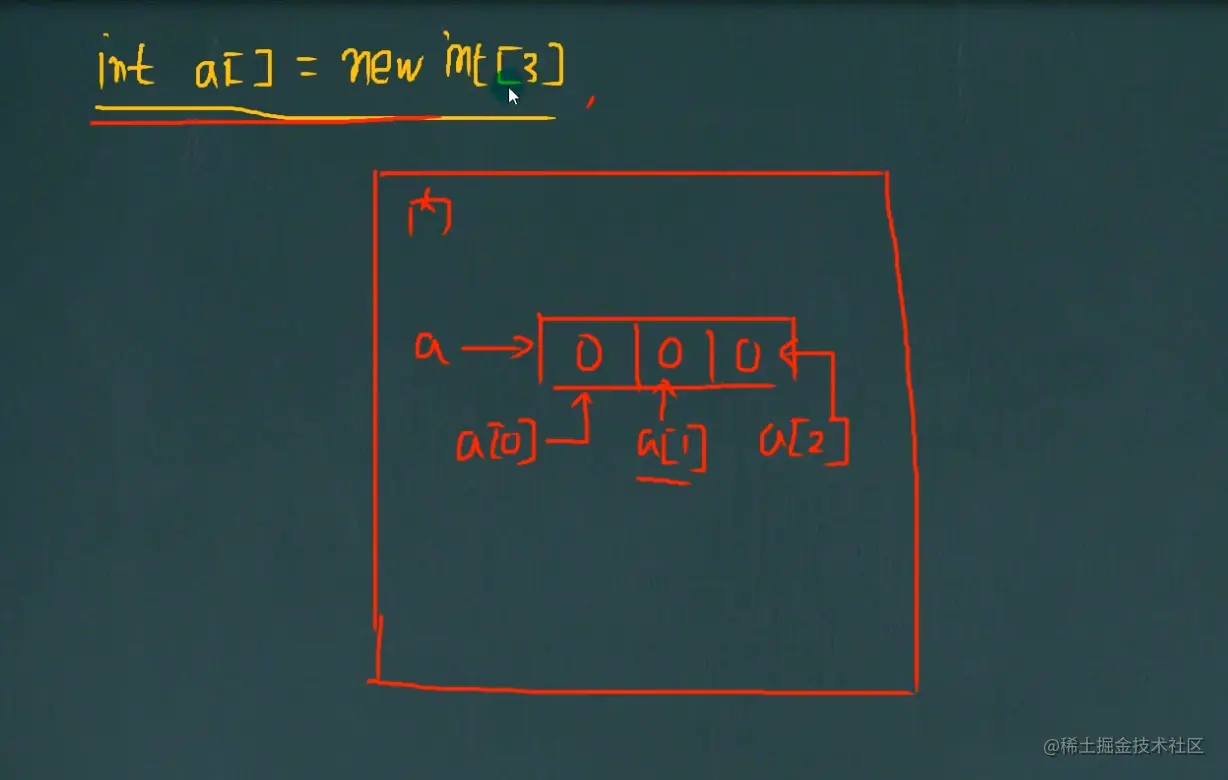 int a[] = new int[3]
a 0 0 0
a[0] a[1] a[2]
@稀土掘金技术社区